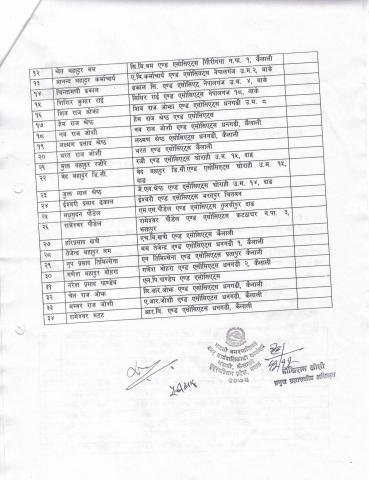 १२ चेत बहादुर बम सि.वि.बम एण्ड एसोसिएट्स गिरीगंगा न.पा. १, कैलाली
१३ आनन्द बहादुर कर्माचार्य ए.वि.कर्माचार्य एण्ड एसोसिएट्स नेपालगंज उ.म.२, बाके
१४ चिन्तामणी ढकाल ढकाल सि. एण्ड एसोसिएट्स नेपालगंज उ.म. ४, बाके
१५ शिशिर कुमार राई शिशिर राई एण्ड एसोसिएट्स नेपालगंज १८, बाके
१६ शिव राज ओका शिव राज ओका एण्ड एसोसिएट्स धनगढी उ.म. ८
१७ हेम राज श्रेष्ठ हेम राज श्रेष्ठ एण्ड एसोसिएट्स
१८ नव राज जोशी नव राज जोशी एण्ड एसोसिएट्स धनगढी, कैलाली
१९ लक्ष्मण प्रसाद श्रेष्ठ लक्ष्मण श्रेष्ठ एण्ड एसोसिएट्स धनगढी, कैलाली
२० भरत राज जोशी भरत एण्ड एसोसिएट्स धनगढी, कैलाली
२१ मुक्त बहादुर रजौरे रजौरे एण्ड एसोसिएट्स घोराही उ.म. १५, दाङ
२२ वेद बहादुर डि.सी. वेद बहादुर डि.सी.एण्ड एसोसिएट्स घोराही उ.म. १५,
दाङ
२३ जुक्त लाल श्रेष्ठ जे.एल.श्रेष्ठ एण्ड एसोसिएट्स घोराही उ.म. १४, दाङ
२४ ईश्वरी प्रसाद ढकाल ईश्वरी एण्ड एसोसिएट्स भरतपुर चितवन
२५ मधुसुदन पौडेल एम.एस.पौडेल एण्ड एसोसिएट्स तुल्सीपुर दाङ
२६ रामेश्वर पौडेल रामेश्वर पौडेल एण्ड एसोसिएट्स कटठाघर न.पा. ३,
भक्तपुर
२७ हरिप्रसाद खत्री एच.वि.खत्री एण्ड एसोसिएट्स
२८ तेजेन्द्र बहादुर बम बम तेजेन्द्र एण्ड एसोसिएट्स धनगढी १, कैलाली
२९ नृप प्रसाद तिमिल्सेना एन तिमिल्सेना एण्ड एसोसिएट्स प्रतापुर कैलाली
३० गणेश बहादुर बोहरा गणेश बोहरा एण्ड एसोसिएट्स धनगढी २, कैलाली
३१ नरेश प्रसाद पाण्डेय एन.पि.पाण्डेय एण्ड एसोसिएट्स
३२ चेत राज ओझा सि.आर.ओझा एण्ड एसोसिएट्स धनगढी, कैलाली
३३ अम्बर राज जोशी ए.आर.जोशी एण्ड एसोसिएट्स धनगढी, कैलाली
३४ रामेश्वर भटट आर.सि. एण्ड एसोसिएट्स धनगढी, कैलाली
२०७३
जोशी
प्रमुख प्रशासकीय अधिकृत